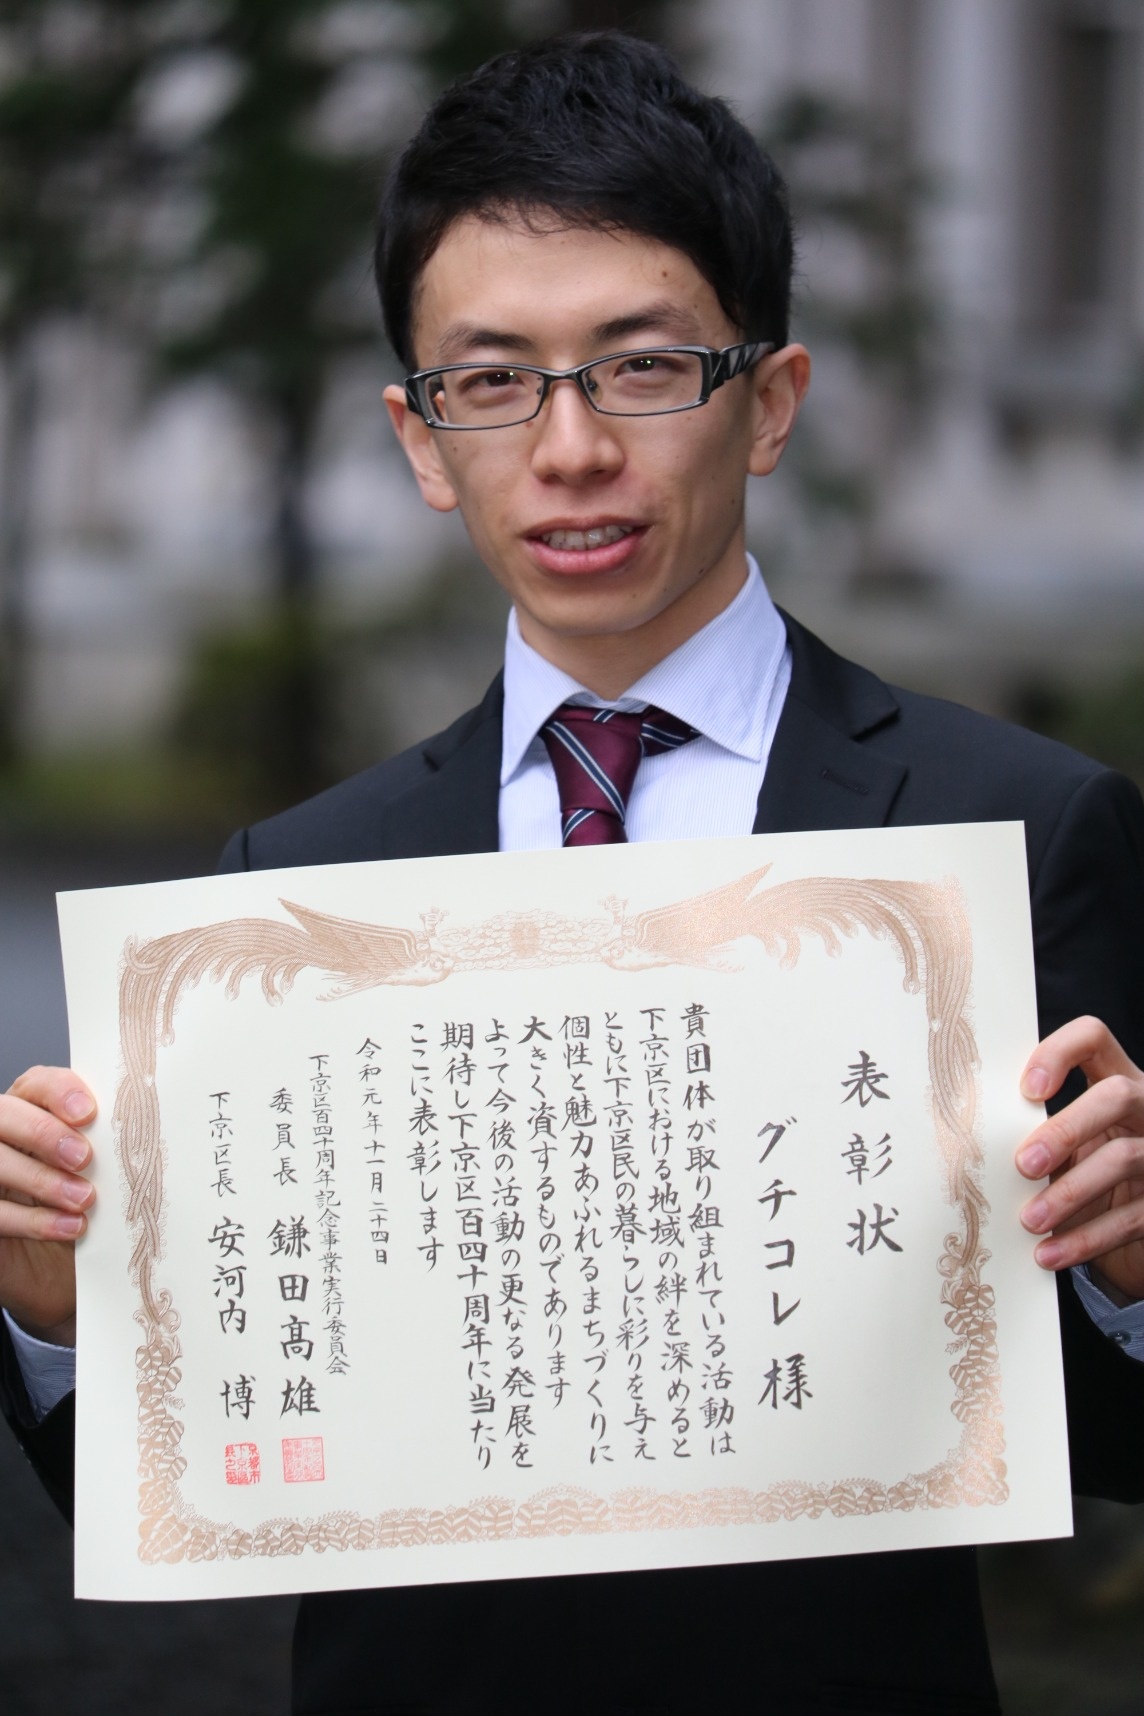 表彰状
グチコレ様
貴団体が取り組まれている活動は
下京区における地域の絆を深めると
ともに下京区民の暮らしに彩りを与え
個性と魅力あふれるまちづくりに
大きく資するものであります
よって今後の活動の更なる発展を
期待し下京区百四十周年に当たり
ここに表彰します
令和元年十一月二十四日
下京区百四十周年記念事業実行委員会
委員長 鎌田高雄
下京区長 安河内 博